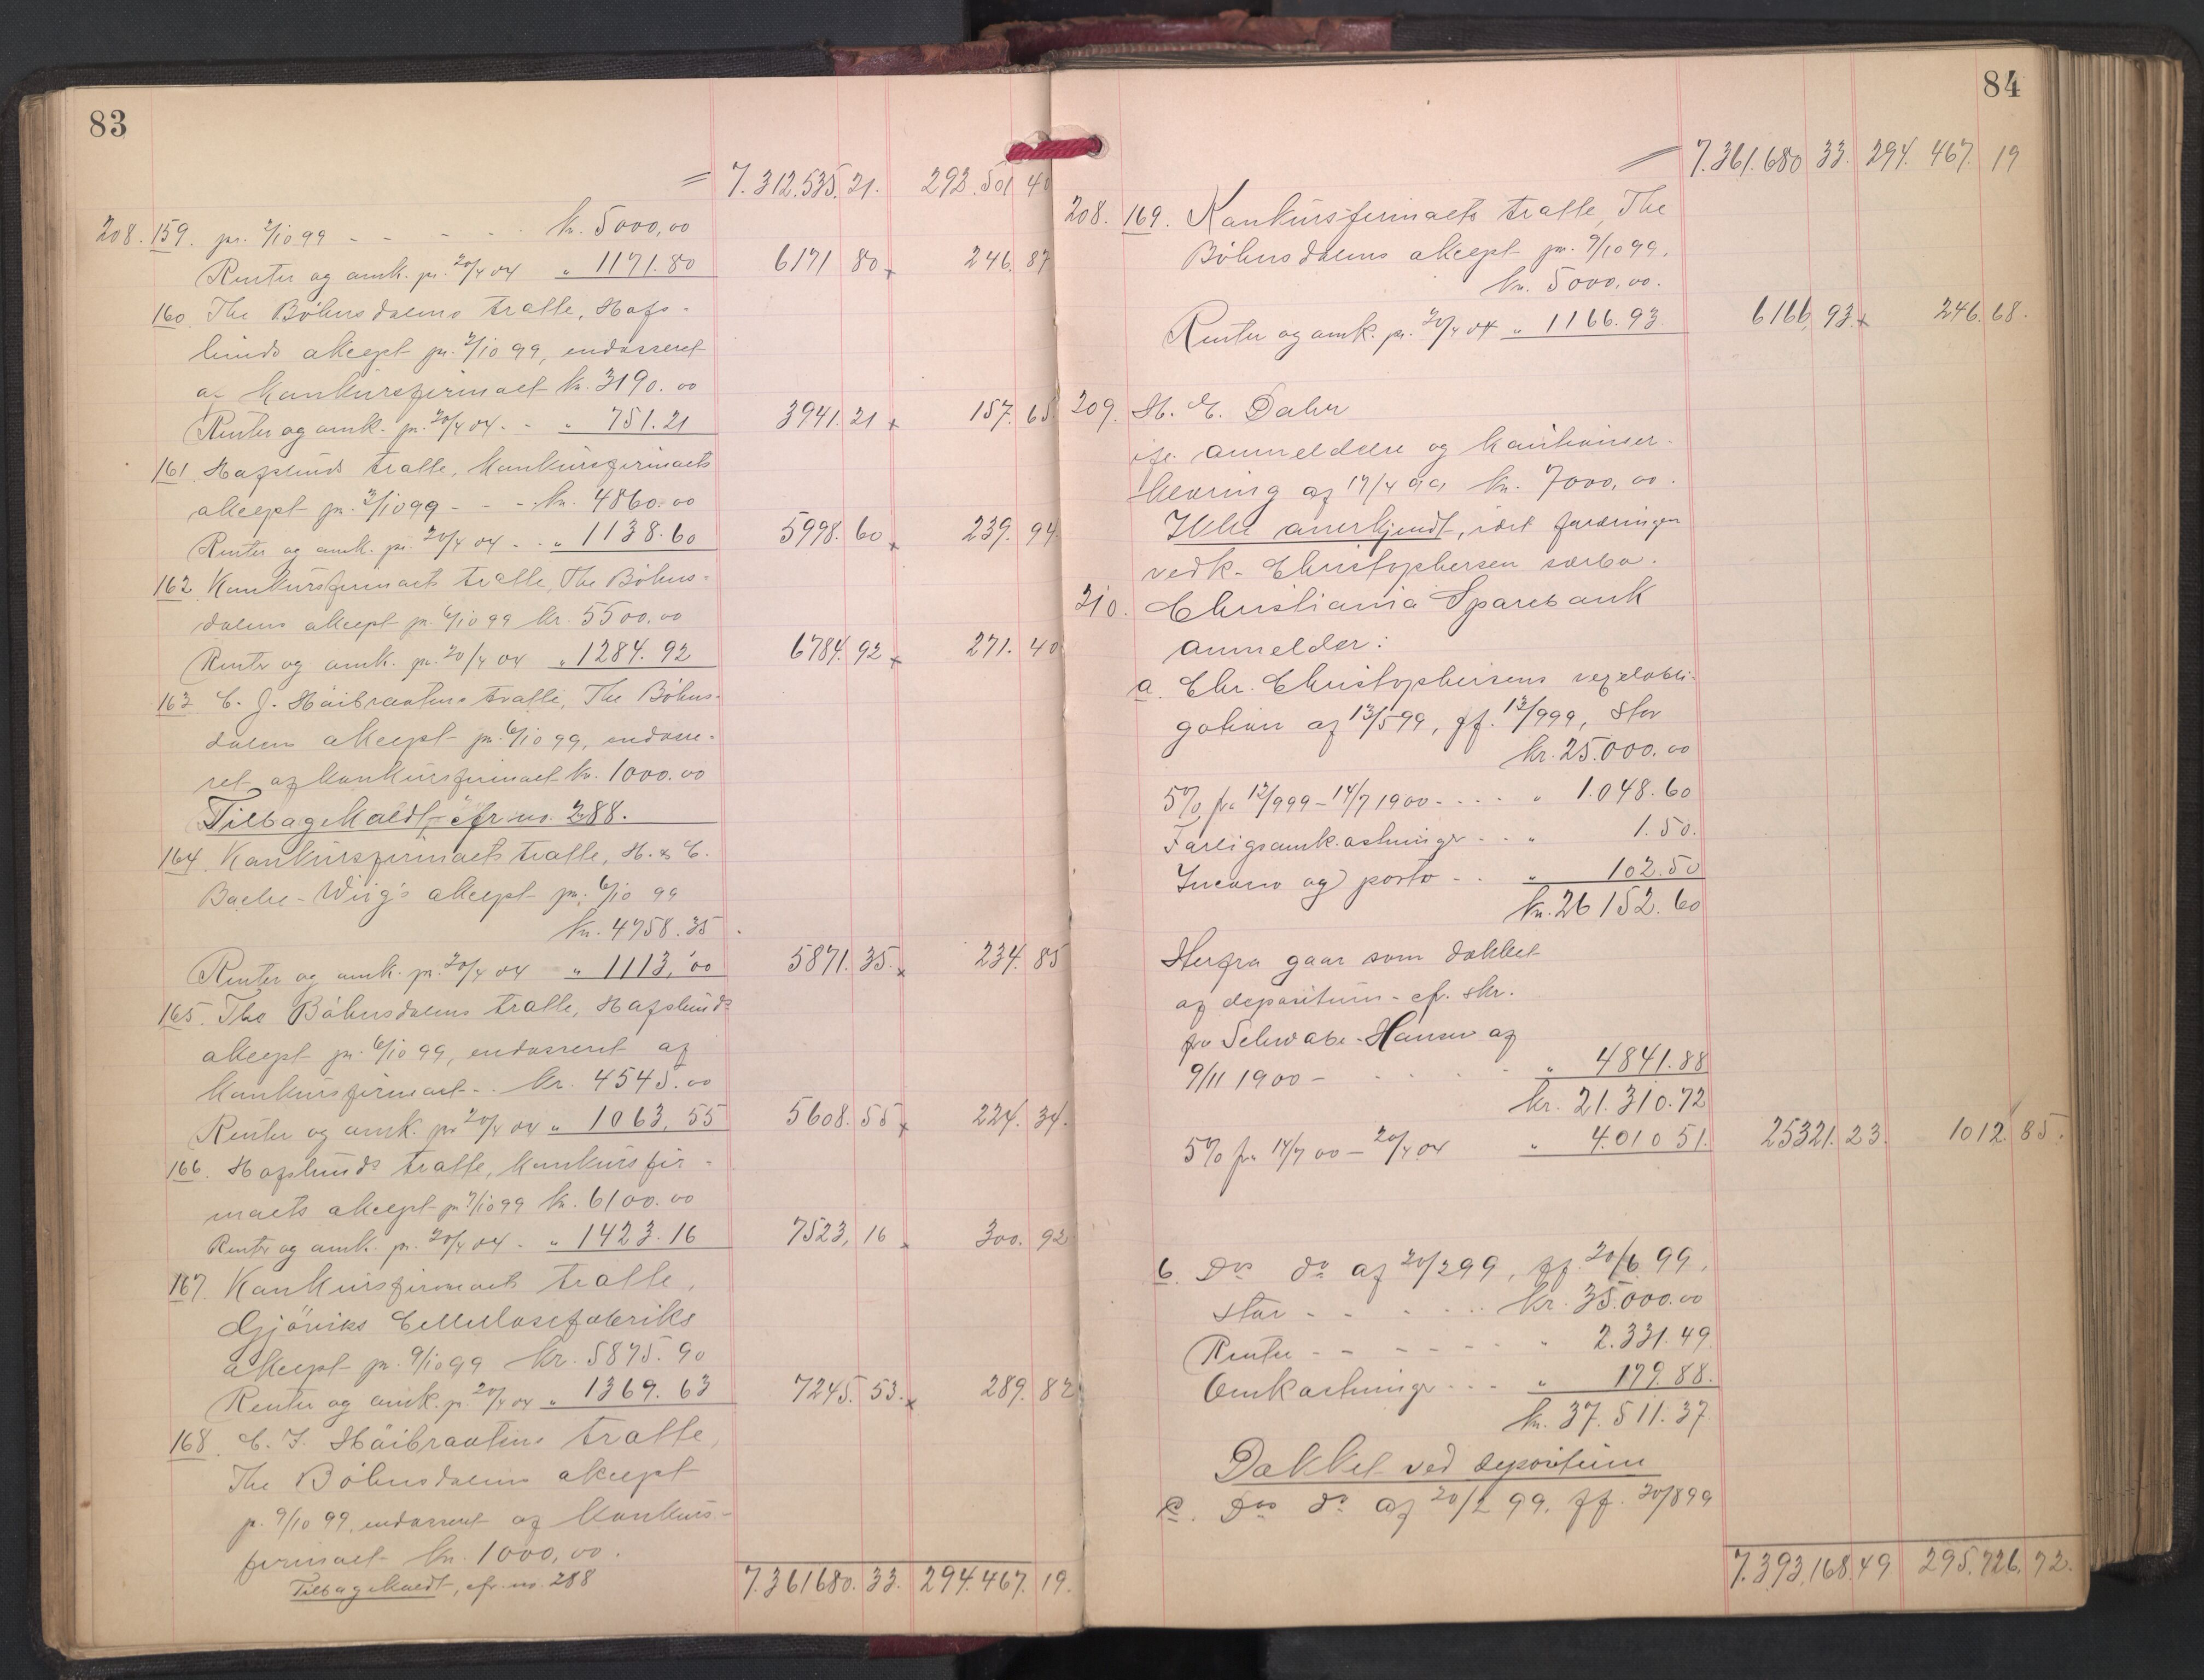 83
= 7.312.535.21. 293.501 40
208. 159. pr. 2/10 99 - - - - - kr. 5000,00
Renter og omk. pr. 20/4 04 „ 1171.80 6171 80 x 246. 87
160. The Böhnsdalens tratte, Hafs-
lunds aksept pr. 2/10 99, endosseret
af konkursfirmaet kr. 3190.00
Renter og omk. pr. 20/4 04 - - „ 751.21 3941. 21 x 157. 65
161. Hafslunds tratte, konkursfirmaets
aksept pr. 3/10 99 - - - kr. 4860.00
Renter og omk. pr. 20/4 04 - - „ 1138.60 5998. 60 x 239. 94.
162. Konkursfirmaets tratte, The Böhns-
dalens aksept pr. 6/10 99 kr. 5500,00
Renter og omk. pr. 20/4 04 „ 1284.92 6784. 92 x 271. 40
163 C. J. Höibraatens tratte, The Böhns-
dalens aksept pr. 6/10 99, endosse-
ret af konkursfirmaet kr. 1000.00
Tilbagekaldt cfr. no. 288.
164. Konkursfirmaets tratte, H. & C.
Bache-Wiig's aksept pr. 6/10 99
kr. 4758.35
Renter og omk. pr. 20/4 04 „ 1113,00 5871. 35. x 234. 85
165. The Böhnsdalens tratte, Hafslunds
aksept pr. 6/10 99, endosseret af
konkursfirmaet - - kr. 4545.00
Renter og omk. pr 20/4 04 „ 1063,55 5608. 55 x 224. 34.
166. Hafslunds tratte, konkursfir-
maets aksept pr 7/10 99 kr. 6100.00
Renter og omk. pr. 20/4 04 - „ 1423.16 7523, 16 x 300. 92
167. Konkursfirmaets tratte,
Gjöviks Cellulosefabriks
aksept pr. 9/10 99 kr. 5875.90
Renter og omk. pr. 20/4 04 „ 1369.63 7245. 53. x 289. 82
168. C. J. Höibraatens tratte,
The Böhnsdalens aksept
p. 9/10 99, endosseret af konkurs-
firmaet kr. 1000,00.
Tilbagekaldt, cfr. no. 288
7.361680. 33. 294.467. 19.
84
= 7.361.680 33. 294. 467. 19
208. 169. Konkursfirmaets tratte, The
Böhnsdalens aksept pr. 9/10 99.
kr. 5000,00.
Renter og omk. pr. 20/4 04 „ 1166.93. 6166, 93. x 246. 68.
209. H. E. Dahr
ifl. anmeldelse og kautionser-
klæring af 17/4 99 kr. 7000,00.
Ikke anerkjendt, idet fordringen
vedk. Christophersen særbo.
210. Christiania Sparebank
anmelder:
a. Chr. Christophersens vexelobli-
gation af 13/5 99, ff. 13/9 99, stor
kr. 25.000.00
5% fra 13/9 99 - 14/7 1900 - - - - „ 1.048.60
Farligsomkostninger - - „ 1.50.
Incasso og porto - - „ 102.50
kr. 26152.60
Herfra gaar som dækket
af depositum - cf. skr.
fra Schwabe-Hansen af
9/11 1900 - - - - - „ 4841.88
kr. 21.310.72
5% fra 14/7 00 - 20/4 04 „ 4.010 51. 25321. 23. 1012. 85.
b. Do do af 20/2 99, ff. 20/6 99,
stor - - - - - kr. 35.000.00
Renter - - - - - - „ 2.331.49.
Omkostninger - - - „ 179.88.
kr. 37.511.37
Dækket ved depositum
c. Do do af 20/2 99. ff. 20/8 99
7.393.168.49 295.726. 72.